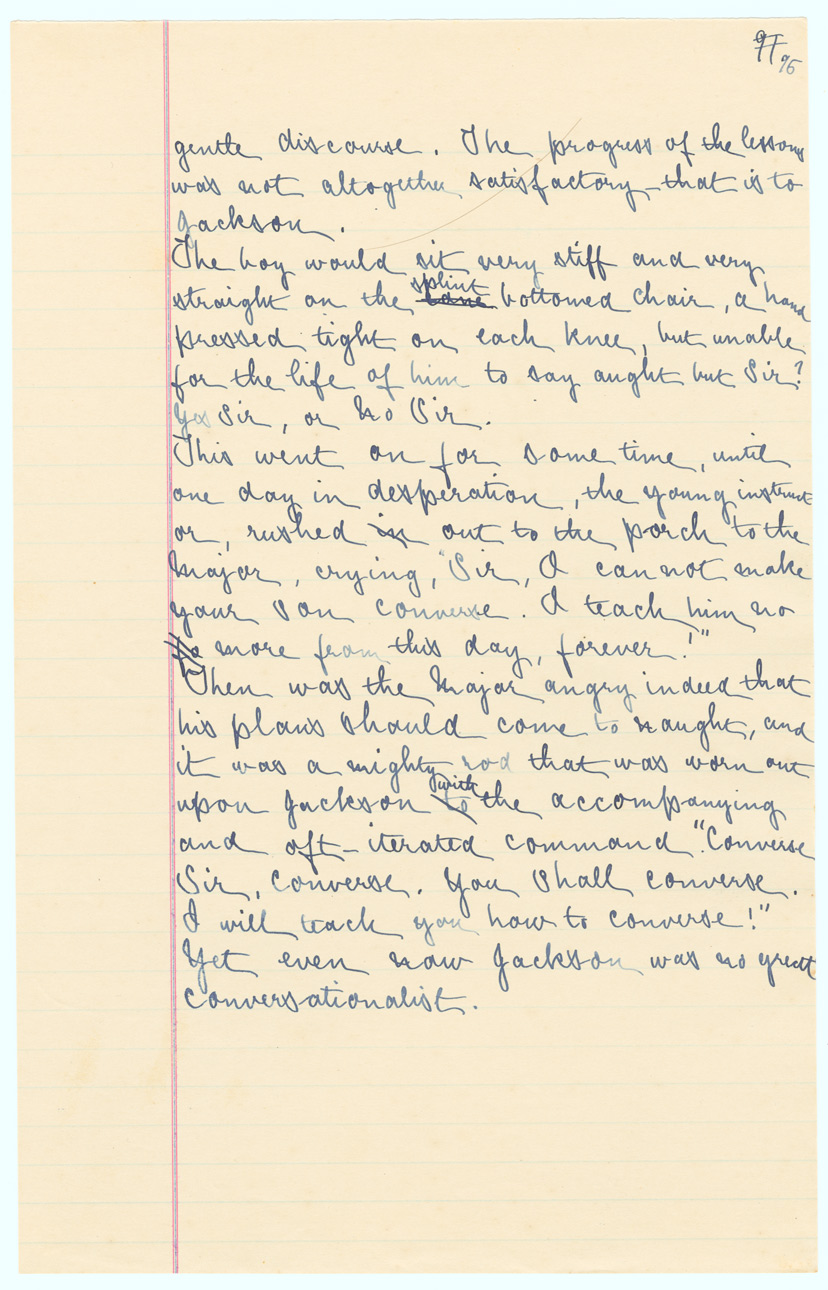 97 96
gentle discourse. The progress of the lessons
was not altogether satisfactory - that is to
Jackson.
The boy would sit very stiff and very
splint
straight on the cane bottomed chair, a hand
pressed tight on each knee, but unable
for the life of him to say aught but Sir?
Yes Sir, or No Sir.
This went on for some time, until
one day in desperation, the young instruct
or, rushed in out to the porch to the
Major, crying, "Sir, I can not make
your son converse. I teach him no
more from this day, forever!"
Then was the Major angry indeed that
his plans should come to naught, and
it was a mighty rod that was worn out
with
upon Jackson to the accompanying
and oft-iterated command "Converse
Sir, converse. You shall converse.
I will teach you how to converse!"
Yet even now Jackson was no great
conversationalist.